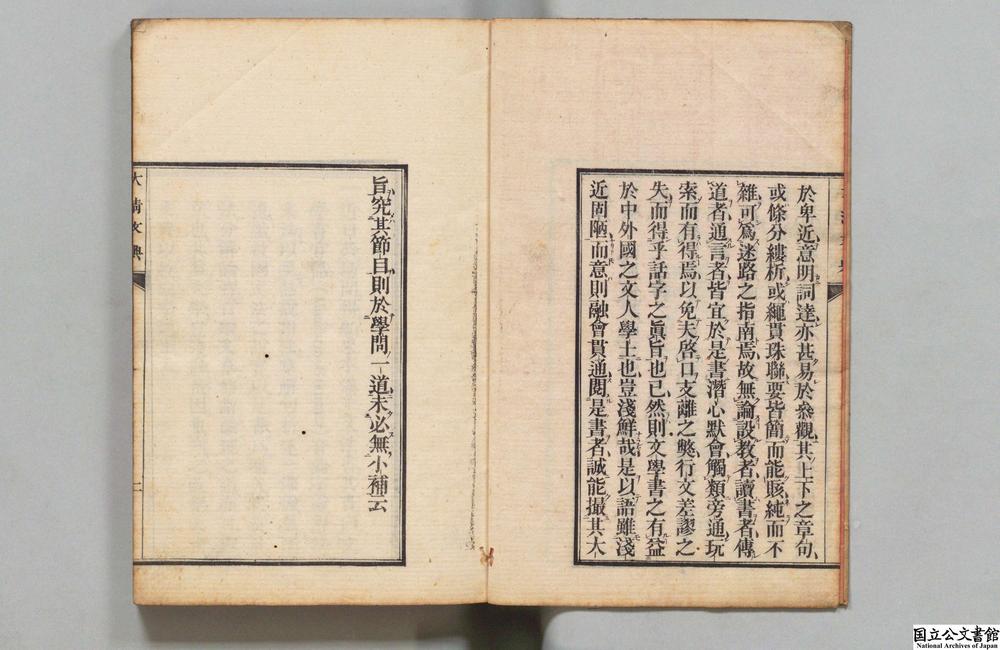 於卑近意明詞達亦甚易於叅觀其上下之章句
或條分縷析或繩貫珠聯要皆簡而能賅純而不
雜可爲迷路之指南焉故無論設教者讀書者傳
道者通言者皆宜於是書潛心默會觸類旁通玩
索而有得焉以免夫啓口支離之獘行文差謬之
失而得乎話字之眞旨也已然則文學書之有益
於中外國之文人學士也豈淺鮮哉是以語雖淺
近固陋而意則融會貫通閱是書者誠能撮其大
旨究其節目則於學問一道未必無小補云
大淸文典
二
国立公文書館
National Archives of Japan